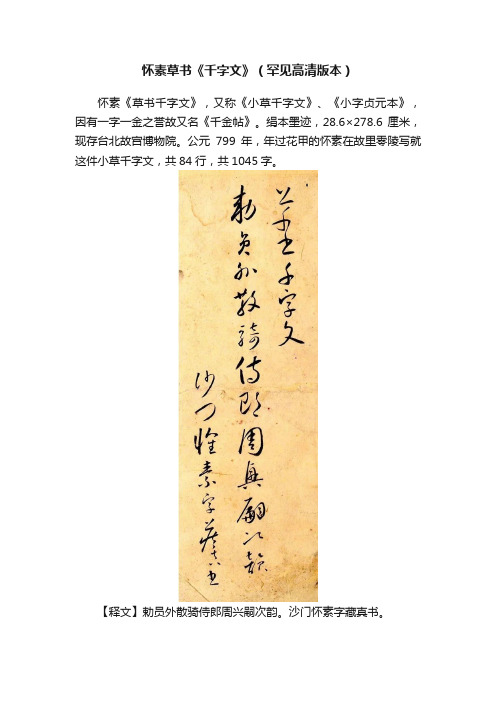 怀素草书《千字文》（罕见高清版本）
怀素《草书千字文》，又称《小草千字文》、《小字贞元本》，
因有一字一金之誉故又名《千金帖》。绢本墨迹，28.6×278.6 厘米，
现存台北故宫博物院。公元 799 年，年过花甲的怀素在故里零陵写就
这件小草千字文，共 84 行，共 1045 字。
草書千字文
勅員外散騎侍郎周興嗣次韻
沙門懷素字藏真書
【释文】勅员外散骑侍郎周兴嗣次韵。沙门怀素字藏真书。